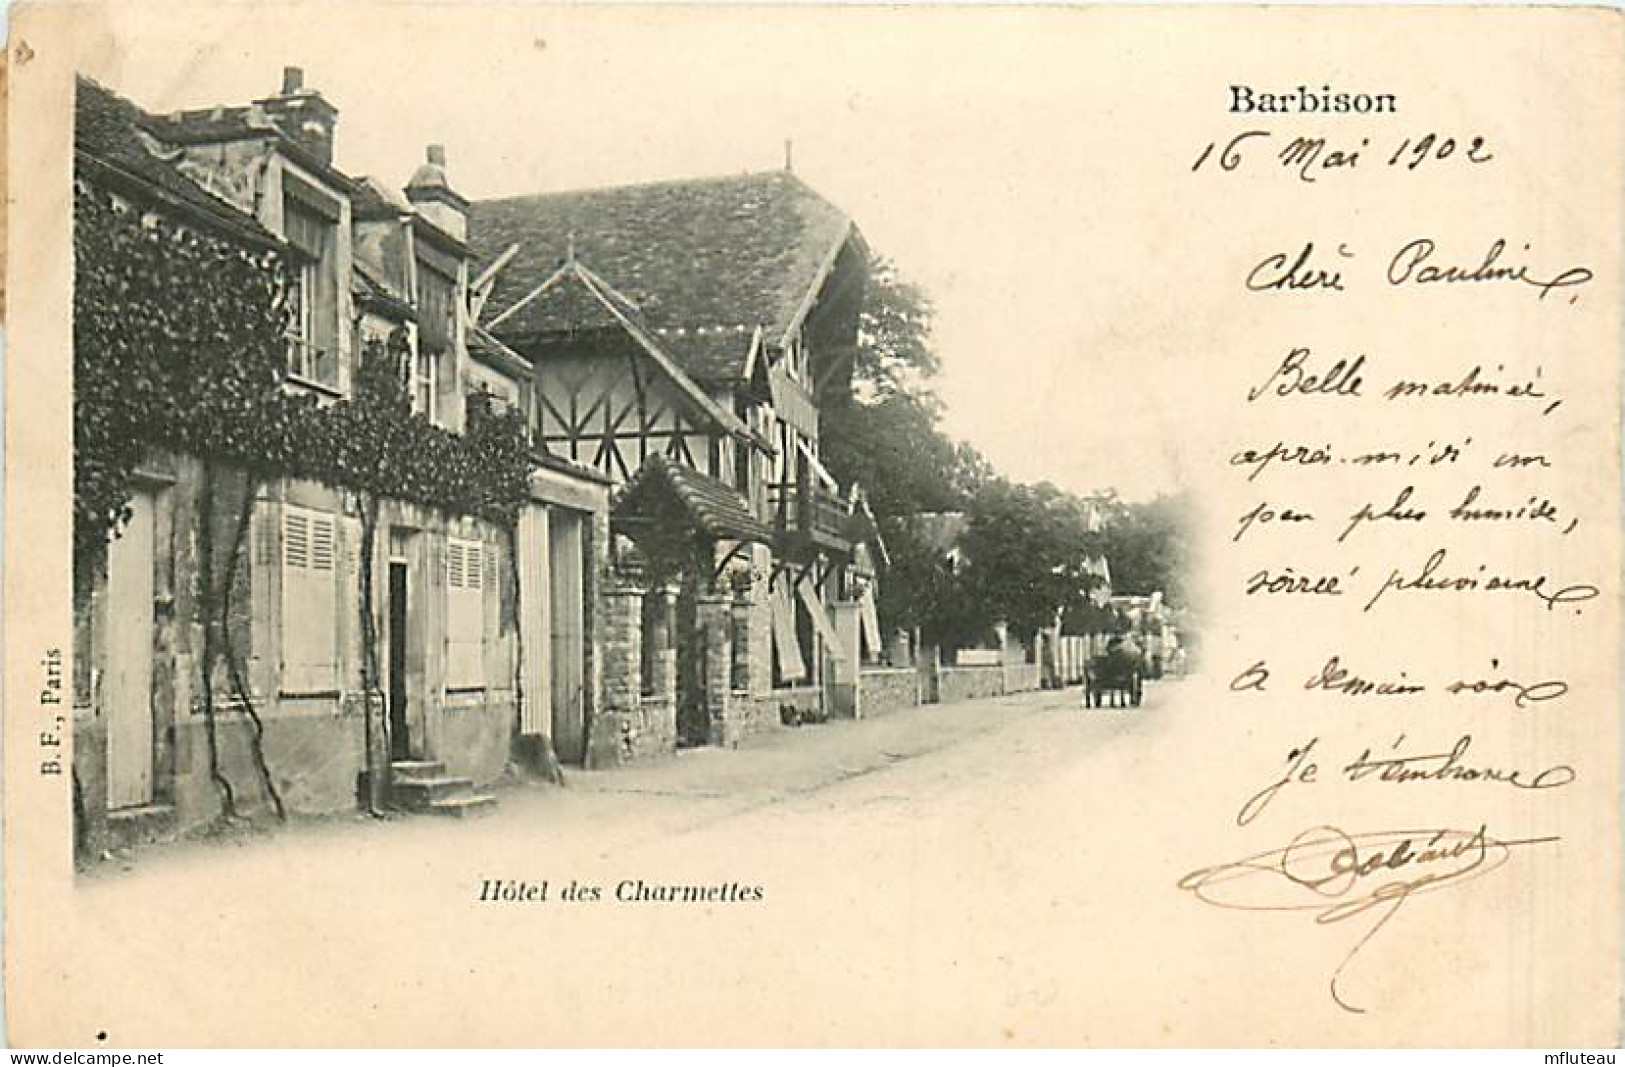 Barbison
16 Mai 1902
Chère Pauline,
Belle matinée,
après-midi un
peu plus humide,
soirée pluvieuse.
A demain soir
Je t'embrasse
Hôtel des Charmettes
B. F., Paris
delcampe.net
mfluteau